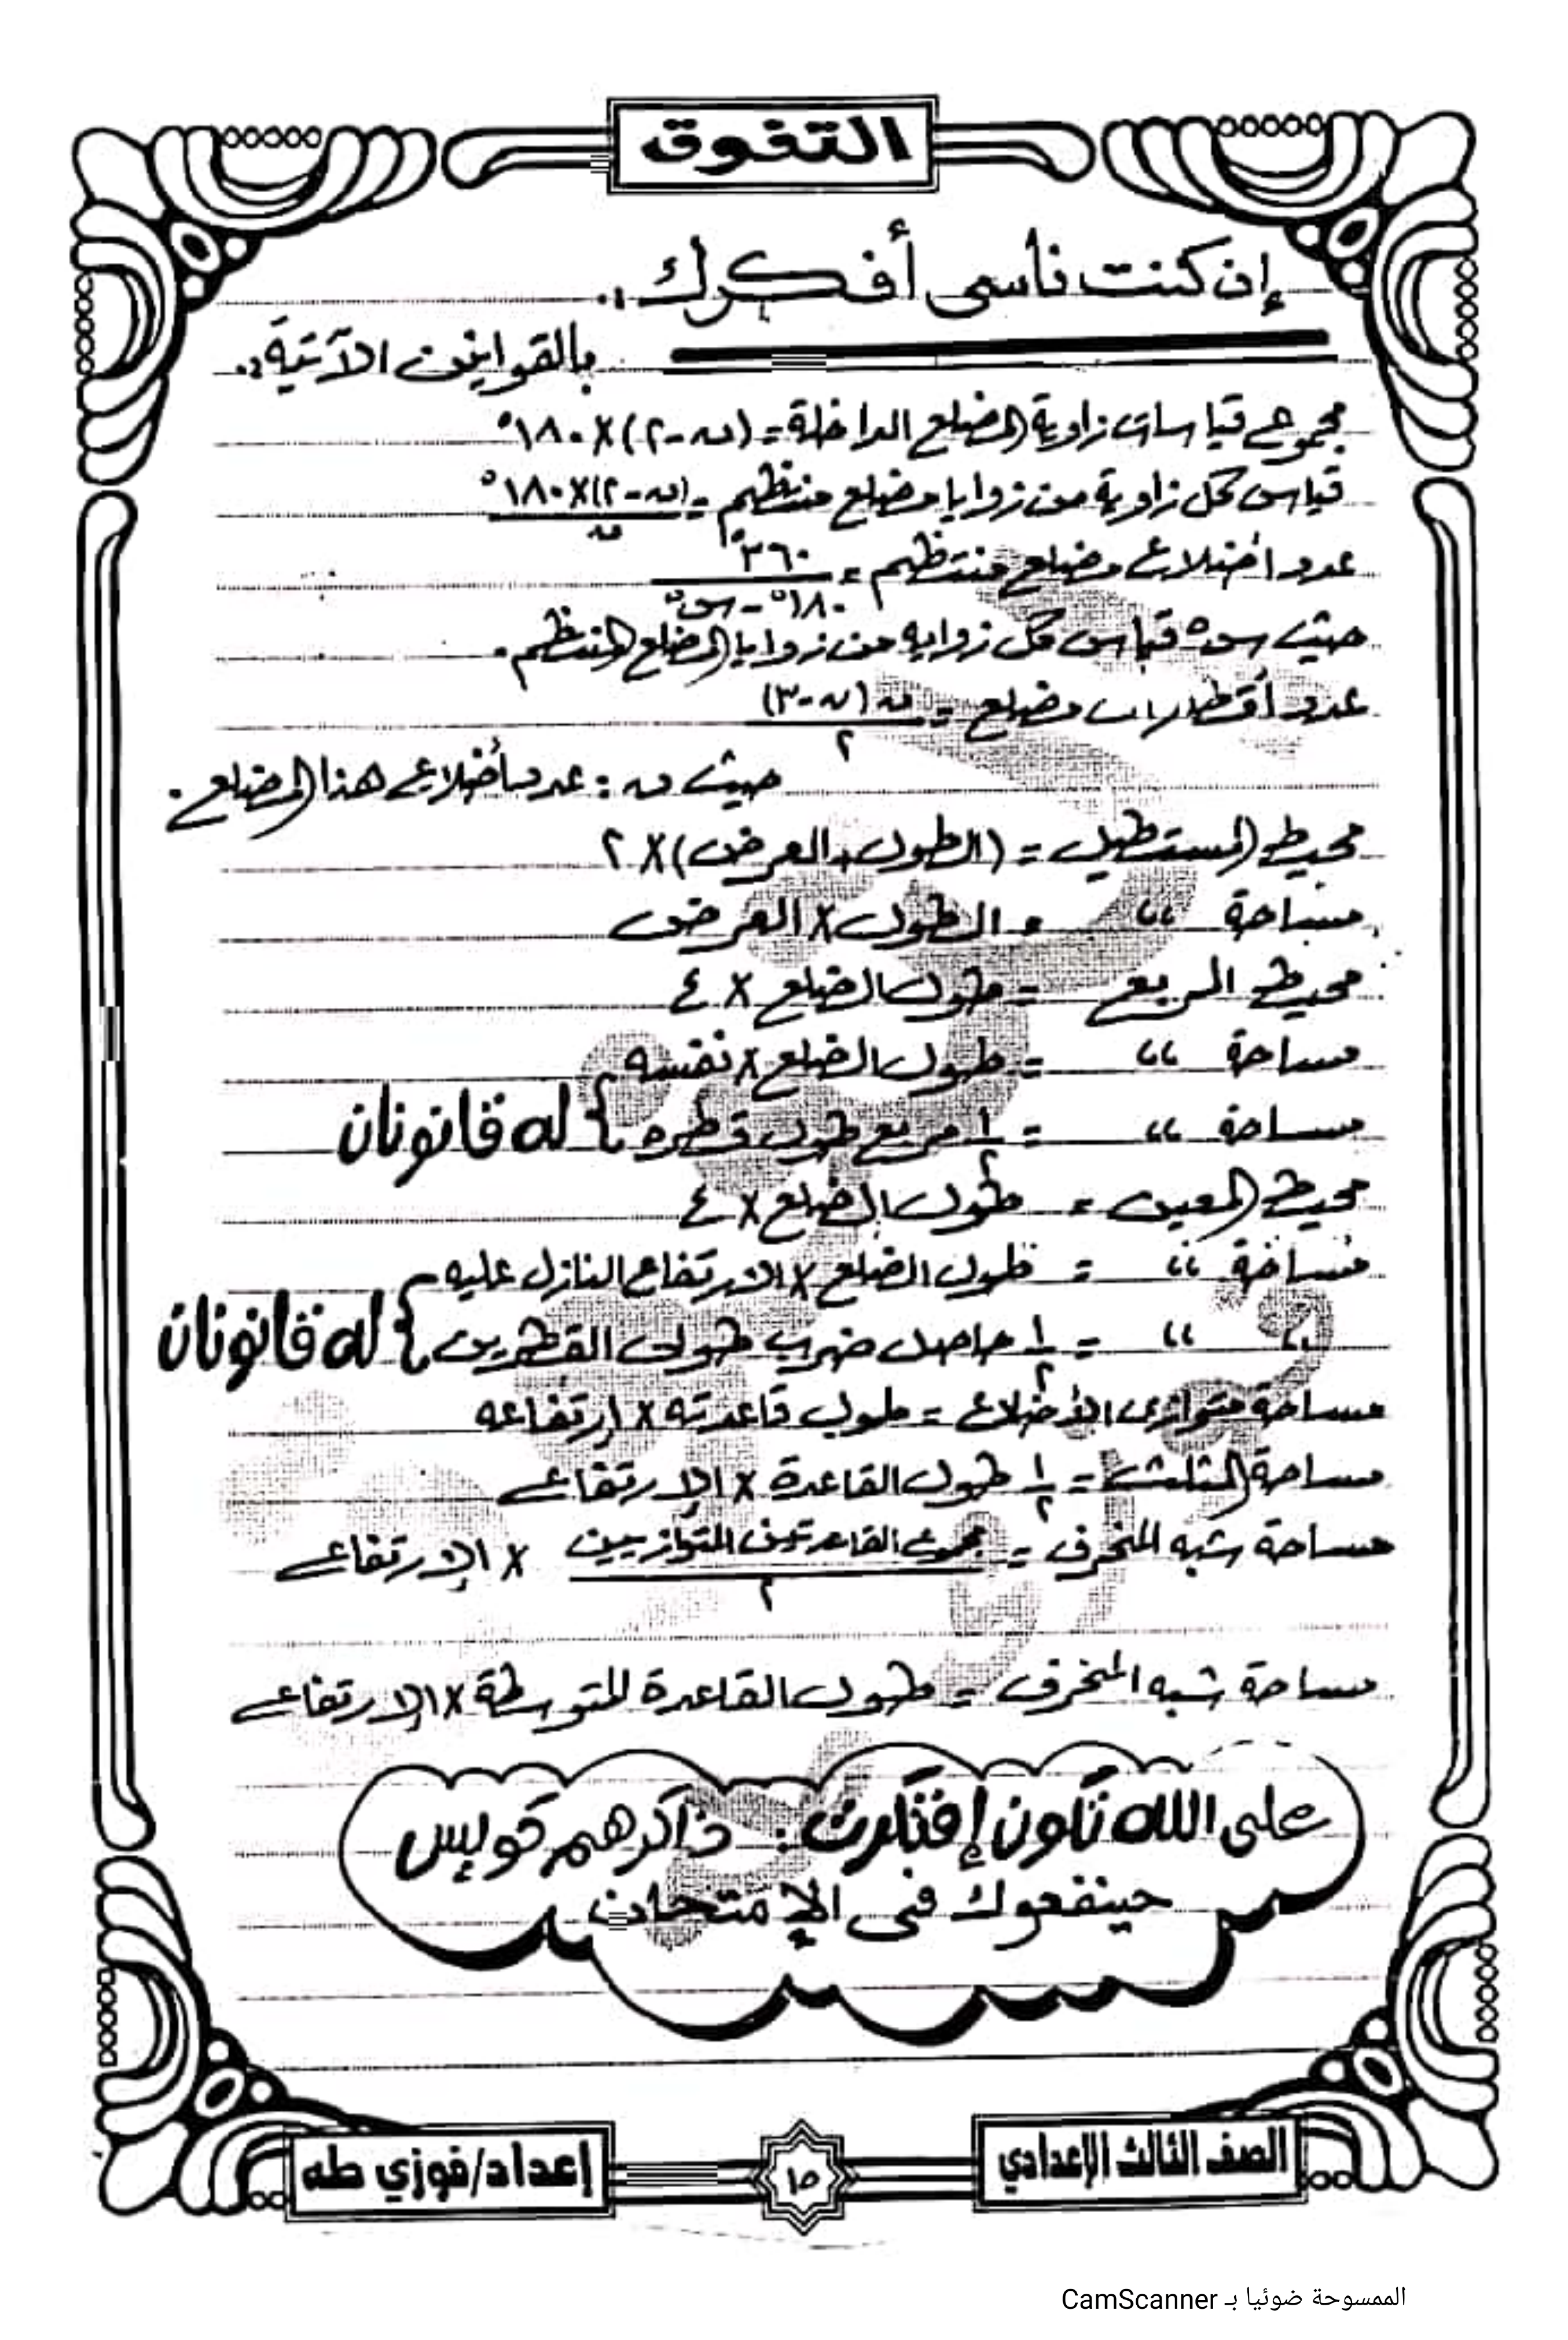 التفوق
إن كنت ناسى أفكرك..
بالقوانين الآتية:.
مجموع قياسات زاوية المضلع الداخلة = (ن - ٢) × ١٨٠°
قياس كل زاوية من زوايا مضلع منتظم = (ن - ٢) × ١٨٠° / ن
عدد أضلاع مضلع منتظم = ٣٦٠° / ١٨٠° - س°
حيث س° قياس كل زوايه من زوايا المضلع المنتظم.
عدد أقطار ات مضلع = ن (ن - ٣) / ٢
حيث ن : عدد أضلاع هذا المضلع.
محيط المستطيل = (الطول + العرض) × ٢
مساحة " = الطول × العرض
محيط المربع = طول الضلع × ٤
مساحة " = طول الضلع × نفسه
مساحة " = ١/٢ مربع طول قطره } له قانونان
محيط المعين = طول الضلع × ٤
مساحة " = طول الضلع × الارتفاع النازل عليه
" " = ١/٢ حاصل ضرب طولى القطرين } له قانونان
مساحة متوازى الأضلاع = طول قاعدته × إرتفاعه
مساحة المثلث = ١/٢ طول القاعدة × الإرتفاع
مساحة شبه المنحرف = مجموع القاعدتين المتوازيين / ٢ × الإرتفاع
مساحة شبه المنحرف = طول القاعدة المتوسطة × الإرتفاع
على الله تكون إفتكرت : ذاكرهم كويس
حينفعوك فى الإمتحان
الصف الثالث الإعدادي
١٥
إعداد/فوزي طه
الممسوحة ضوئيا بـ CamScanner